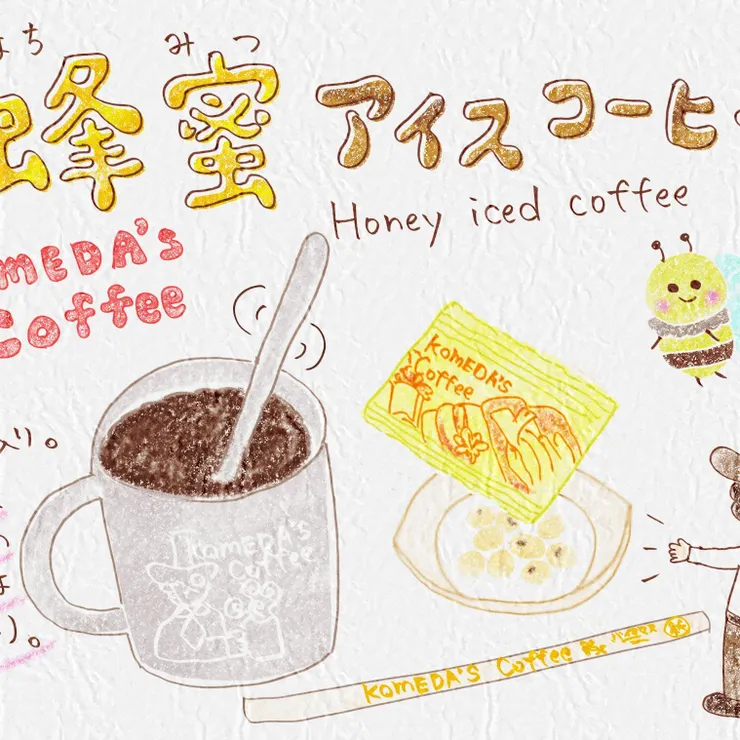 はち みつ
蜂蜜 アイスコーヒー
Honey iced coffee
KOMEDA's
Coffee
KOMEDA's
Coffee
入り。
KOMEDA's
Coffee
KOMEDA's Coffee バイオマス